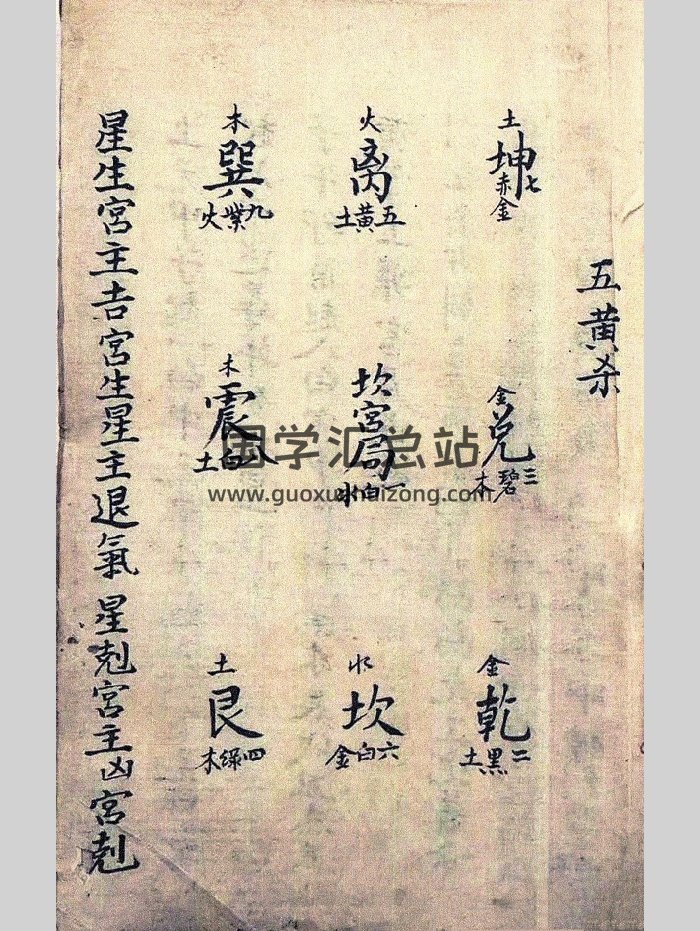 五黄杀
土
坤
七赤金
金
兑
三碧木
金
乾
二黑土
火
离
五黄土
坎宫局
一白水
水
坎
六白金
木
巽
九紫火
木
震
八白土
土
艮
四绿木
星生宮主吉宮生星主退氣星剋宮主凶宮剋
国学汇总站
www.guoxuehuizong.com